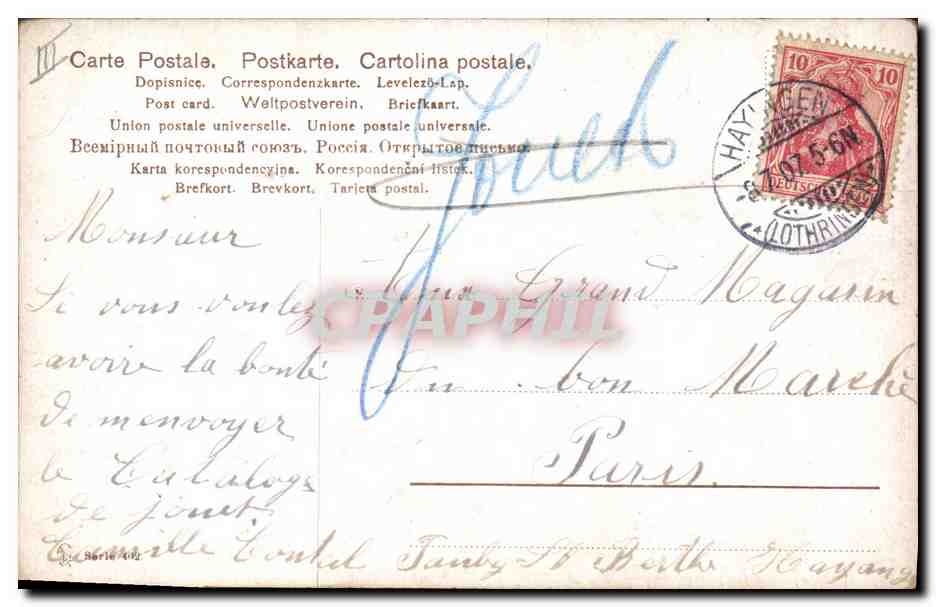 III
Carte Postale. Postkarte. Cartolina postale.
Dopisnice. Correspondenzkarte. Levelező-Lap.
Post card. Weltpostverein. Briefkaart.
Union postale universelle. Unione postale universale.
Всемірный почтовый союзъ. Россія. Открытое письмо.
Karta korespondencyjna. Korespondenční lístek.
Brefkort. Brevkort. Tarjeta postal.
Jouet
10 10
DEUTSCHES
HAYINGEN
07. 5-6N
(LOTHRINGEN)
Monsieur
Si vous voulez
avoire la bonté
de menvoyer
le Catalogs
de jouet
Camille Contal
Grand Magasin
du bon Marché
Paris.
St Berthe Hayang
Serie
CPAPHIL